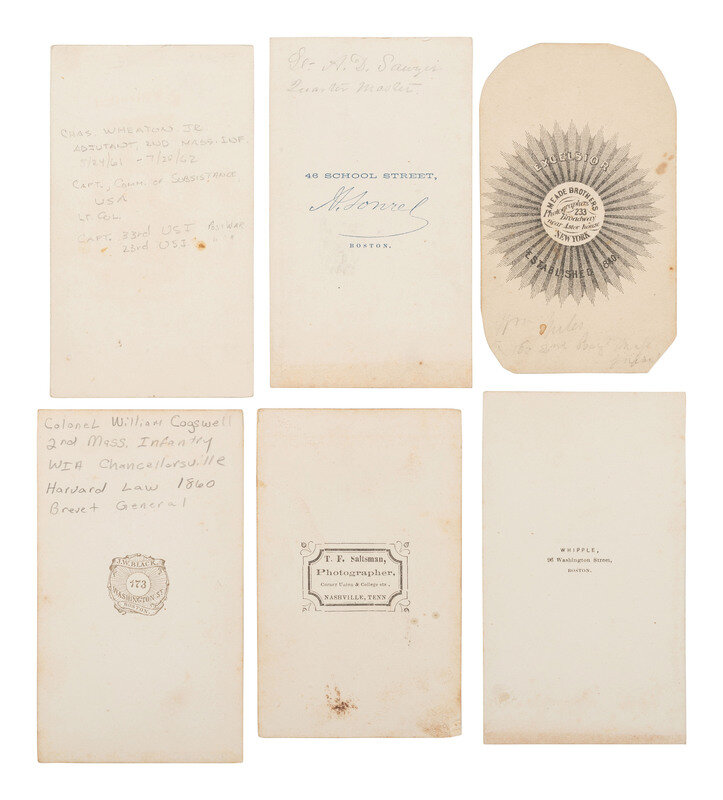 CHAS. WHEATON JR
ADJUTANT, 2ND MASS. INF
5/24/61 - 7/28/62
CAPT., COMM. OF SUBSISTANCE
USA
LT. COL.
CAPT. 33rd USI POSTWAR
23rd USI " "
A. D. Sawyer
Quarter Master.
46 SCHOOL STREET,
A. Sonrel
BOSTON.
EXCELSIOR
MEADE BROTHERS
Photographers
233
Broadway
near Astor house
NEW YORK
ESTABLISHED 1840
Colonel William Cogswell
2nd Mass. Infantry
WIA Chancellorsville
Harvard Law 1860
Brevet General
J.W. BLACK
173
WASHINGTON ST.
BOSTON.
T. F. Saltsman,
Photographer,
Corner Union & College sts.,
NASHVILLE, TENN
WHIPPLE,
96 Washington Street,
BOSTON.